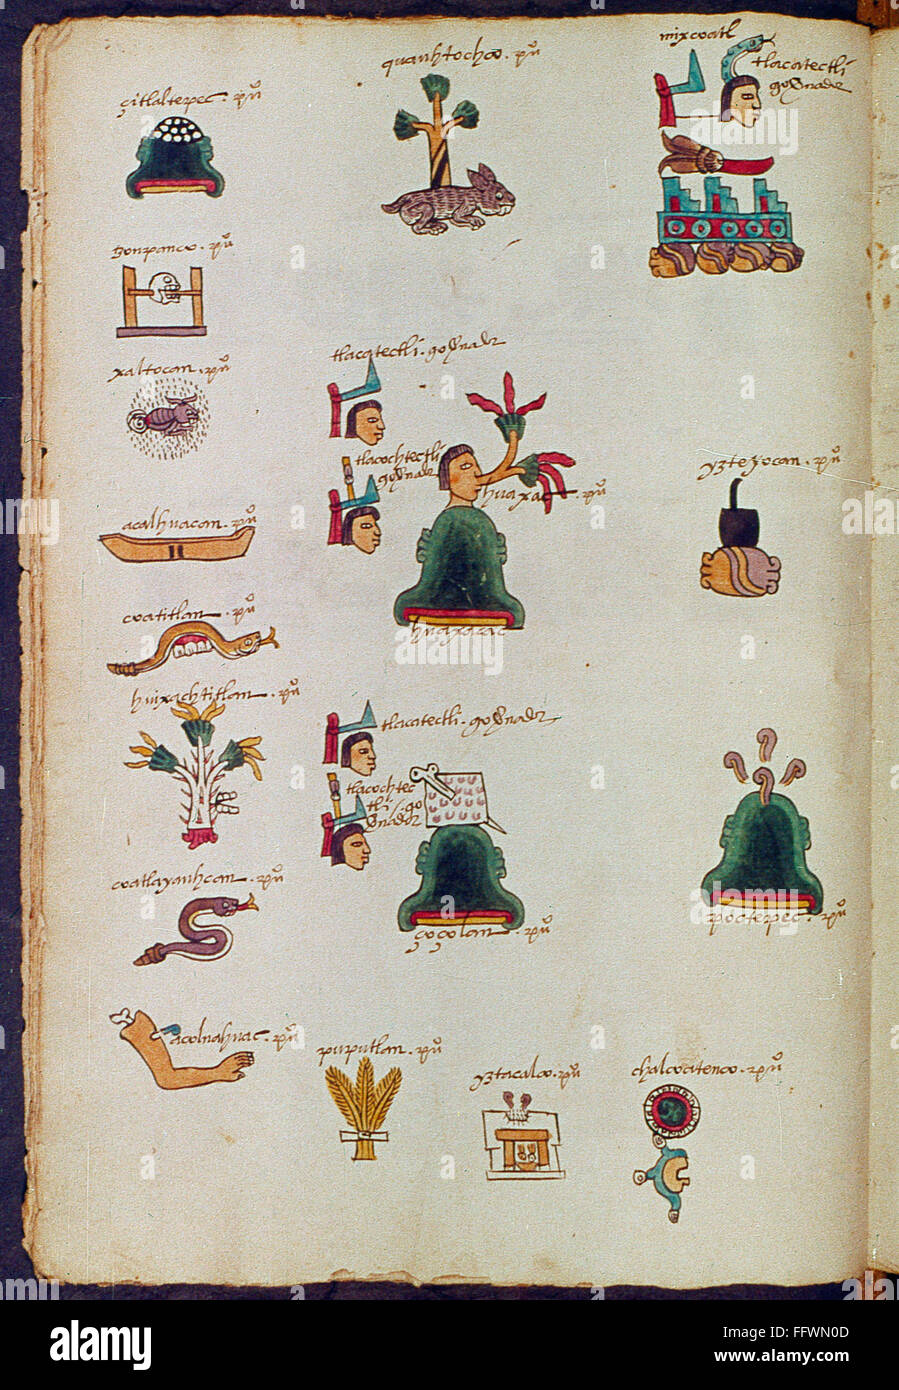 çitlaltepec. puº
quauhtochco. puº
mixcoatl
tlacatectli
gouernador
tzonpanco. puº
xaltocan. puº
tlacatectli. gouernador
tlacochtectli
gouernador
huaxac. puº
huaxacac
yzteyocan. puº
acalhuacan. puº
coatitlan. puº
huixachtitlan. puº
tlacatectli. gouernador
tlacochtec
tli / go
uernador
coatlayauhcan. puº
çoçolan. puº
poctepec. puº
acolnahuac. puº
puputlan. puº
yztacalco. puº
chalcoatenco. puº
alamy
Image ID: FFWN0D
www.alamy.com